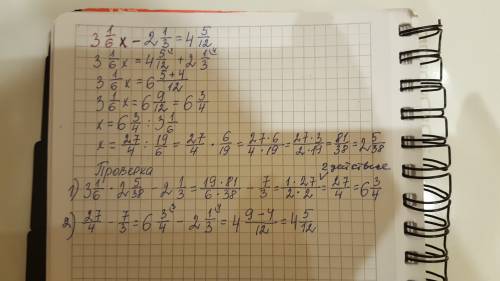 3 1/6 x - 2 1/3 = 4 5/12
3 1/6 x = 4 5/12 + 2 1/3^4
3 1/6 x = 6 (5+4)/12
3 1/6 x = 6 9/12 = 6 3/4
x = 6 3/4 : 3 1/6
x = 27/4 : 19/6 = 27/4 · 6/19 = (27·6)/(4·19) = (27·3)/(2·19) = 81/38 = 2 5/38
Проверка 2 действие
1) 3 1/6 · 2 5/38 - 2 1/3 = (19·81)/(6·38) - 7/3 = (1·27)/(2·2) = 27/4 = 6 3/4
2) 27/4 - 7/3 = 6 3/4^3 - 2 1/3^4 = 4 (9-4)/12 = 4 5/12